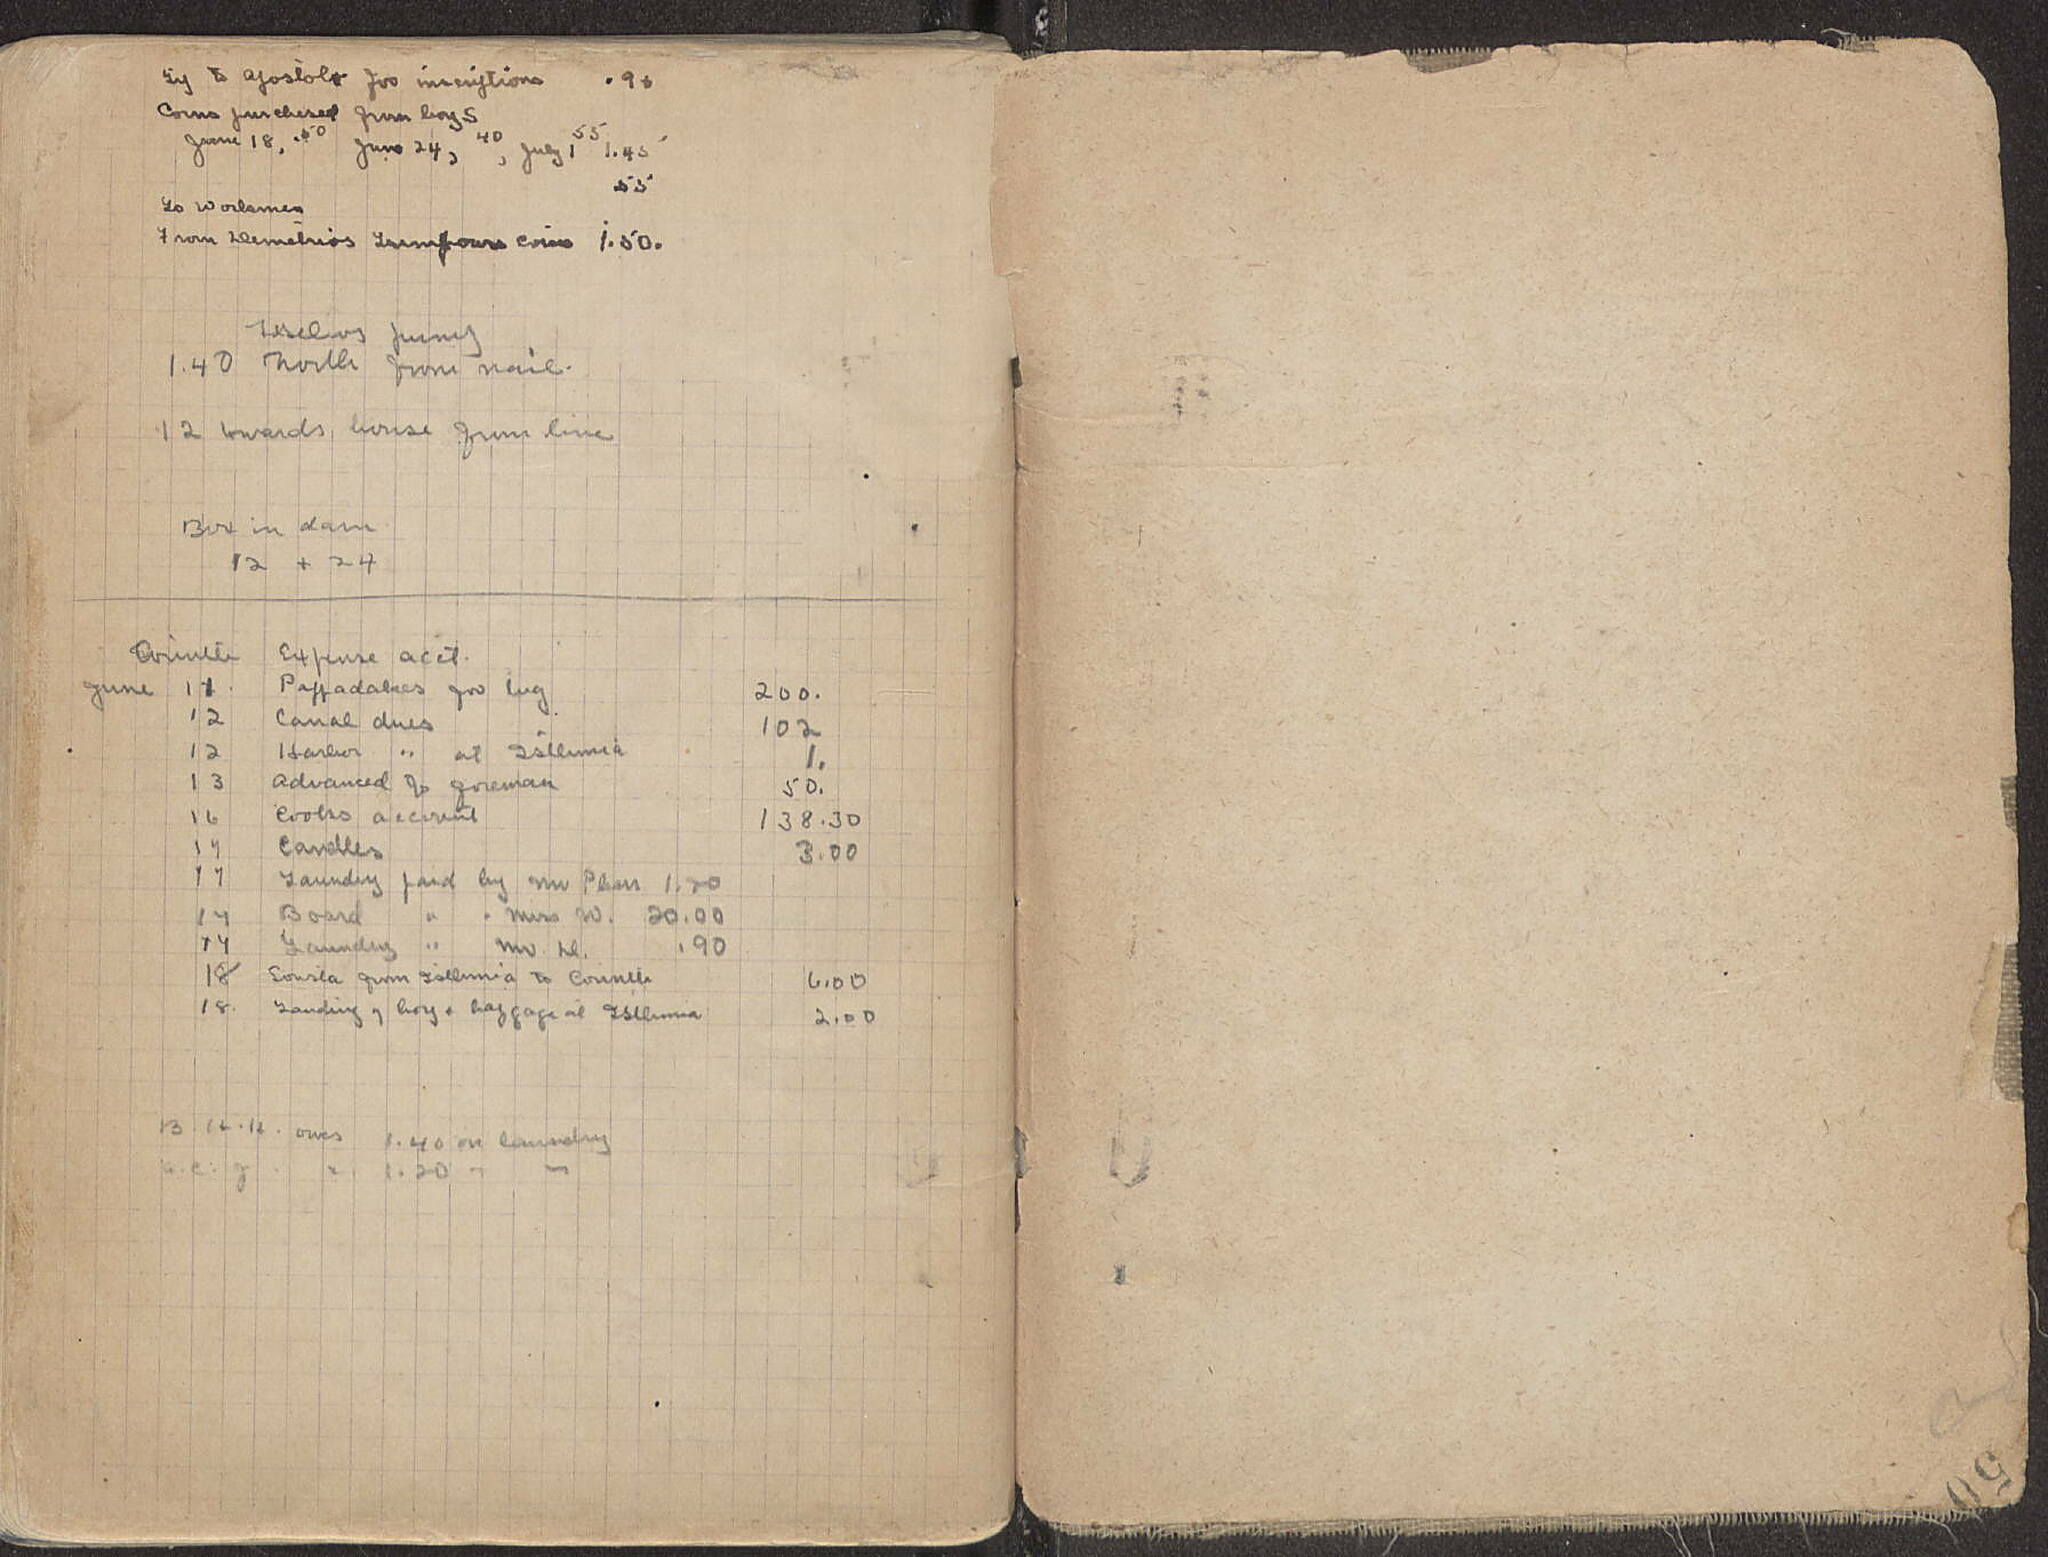 Tip to Apostoli for inscriptions .90
Coins purchased from boys
June 18, .50 June 24, 40, July 1 55 1.45
55
To workmen
From Demetrios coins 1.50.
pump
1.40 North from nail.
12 towards house from line
Box in dam
12 + 24
Corinth Expense acct.
June 11. Pappadakes for tug 200.
12 Canal dues 102
12 Harbor " at Isthmia 1.
13 Advanced to foreman 50.
16 Cooks account 138.30
17 Candles 3.00
17 Laundry paid by Mr 1.20
17 Board " " Miss W. 20.00
17 Laundry " Mr. D. .90
18 Sousta from Isthmia to Corinth 6.00
18. Landing of boy & baggage at Isthmia 2.00
B. H. H. owes 1.40 on laundry
" 1.20 " "
50